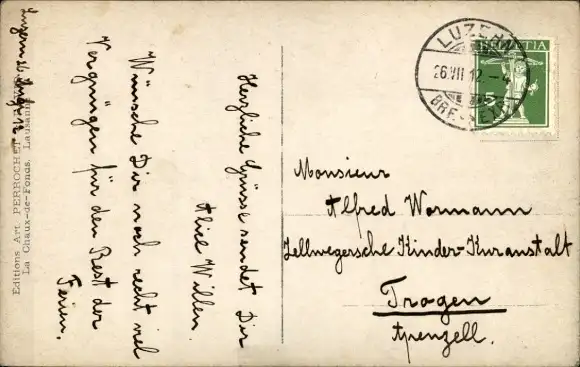 Luzern
Herzliche Grüsse sendet Dir
Aliel Willen.
Wünsche Dir noch recht viel
Vergnügen für den Rest der
Ferien.
Editions Art. PERROCHET
La Chaux-de-Fonds, Lausanne
LUZERN
26.VII.12.-4
BRF.
HELVETIA
5
Monsieur
Alfred Wormann
Zellwegersche Kinder-Kuranstalt
Trogen
Apenzell.